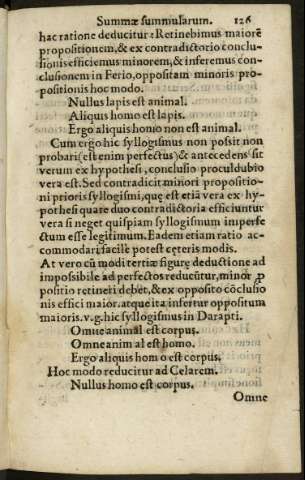 Summæ summularum. 126
hac ratione deducitur: Retinebimus maiorē
propositionem, & ex contradictorio conclu-
sionis efficiemus minorem, & inferemus con-
clusionem in Ferio, oppositam minoris pro-
positionis hoc modo.
Nullus lapis est animal.
Aliquis homo est lapis.
Ergo aliquis homo non est animal.
Cum ergo hic syllogismus non possit non
probari (est enim perfectus) & antecedens sit
verum ex hypothesi, conclusio proculdubio
vera est. Sed contradicit minori propositio-
ni prioris syllogismi, quę est etiā vera ex hy-
pothesi quare duo contradictoria efficiuntur
vera si neget quispiam syllogismum imperfe
ctum esse legitimum. Eadem etiam ratio ac-
commodari facilè potest cęteris modis.
At vero cū modi tertiæ figurę deductione ad
impossibile ad perfectos reducūtur, minor ꝓ
positio retineri debet, & ex opposito cōclusio
nis effici maior. atque ita infertur oppositum
maioris. v.g. hic syllogismus in Darapti.
Omne animal est corpus.
Omne anim al est homo.
Ergo aliquis hom o est corpus.
Hoc modo reducitur ad Celarem.
Nullus homo est corpus.
Omne